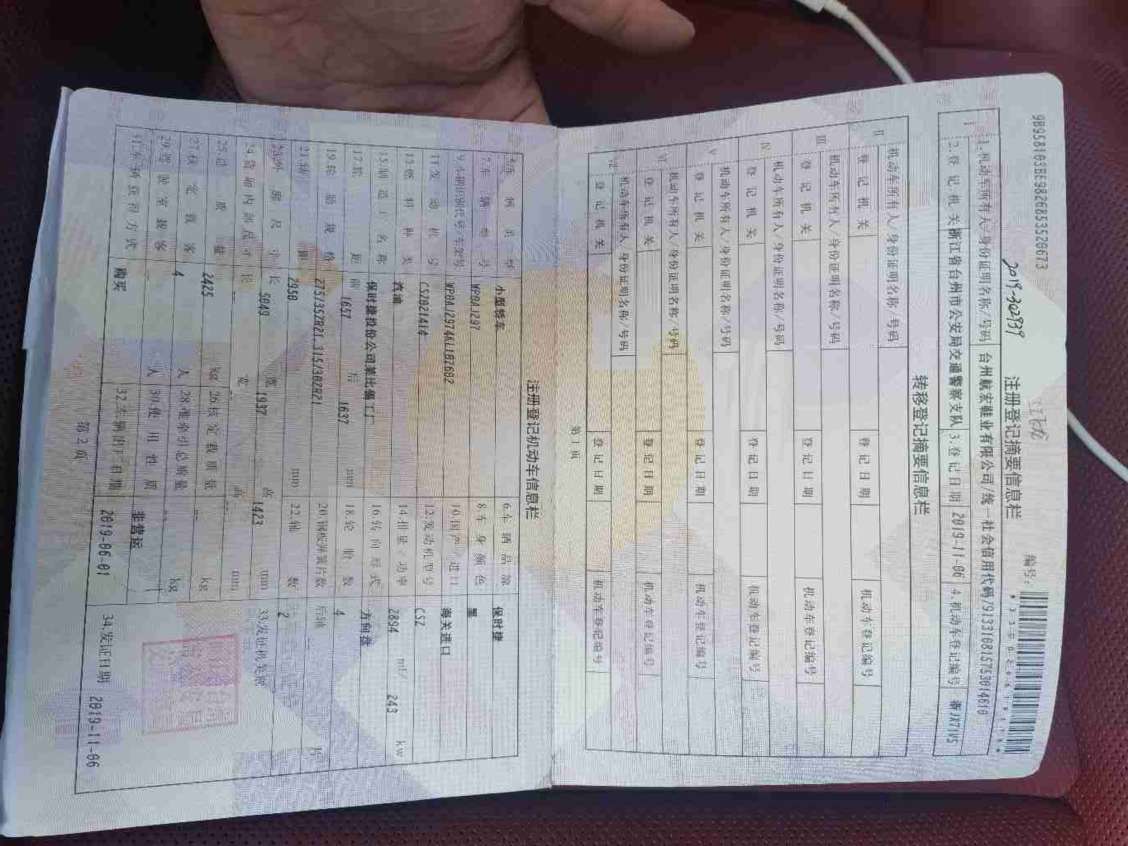 9B958103BE9826853520673
2019-302939
注册登记摘要信息栏
编号:
I
1.机动车所有人/身份证明名称/号码
台州航宏鞋业有限公司/统一社会信用代码/913310815753014610
2.登记机关
浙江省台州市公安局交通警察支队
3.登记日期
2019-11-06
4.机动车登记编号
浙JX71V5
转移登记摘要信息栏
II
机动车所有人/身份证明名称/号码
登记机关
登记日期
机动车登记编号
III
机动车所有人/身份证明名称/号码
登记机关
登记日期
机动车登记编号
IV
机动车所有人/身份证明名称/号码
登记机关
登记日期
机动车登记编号
V
机动车所有人/身份证明名称/号码
登记机关
登记日期
机动车登记编号
VI
机动车所有人/身份证明名称/号码
登记机关
登记日期
机动车登记编号
VII
机动车所有人/身份证明名称/号码
登记机关
登记日期
机动车登记编号
第1页
注册登记机动车信息栏
5.车辆类型
小型轿车
6.车辆品牌
保时捷
7.车辆型号
WP0AJ297
8.车身颜色
黑
9.车辆识别代号/车架号
WP0AJ2974KL107602
10.国产/进口
海关进口
11.发动机号
CSZ021414
12.发动机型号
CSZ
13.燃料种类
汽油
14.排量/功率
2894 ml/ 243 kw
15.制造厂名称
保时捷股份公司莱比锡工厂
16.转向形式
方向盘
17.轮距
前 1657 后 1637 mm
18.轮胎数
4
19.轮胎规格
275/35ZR21,315/30ZR21
20.钢板弹簧片数
后轴 片
21.轴距
2950 mm
22.轴数
2
23.外廓尺寸
长 5049 宽 1937 高 1423 mm
33.发证机关章
24.货箱内部尺寸
长 宽 高 mm
25.总质量
2425 kg
26.核定载质量
kg
27.核定载客
4 人
28.准牵引总质量
kg
29.驾驶室载客
人
30.使用性质
非营运
31.车辆获得方式
购买
32.车辆出厂日期
2019-06-01
34.发证日期
2019-11-06
第2页